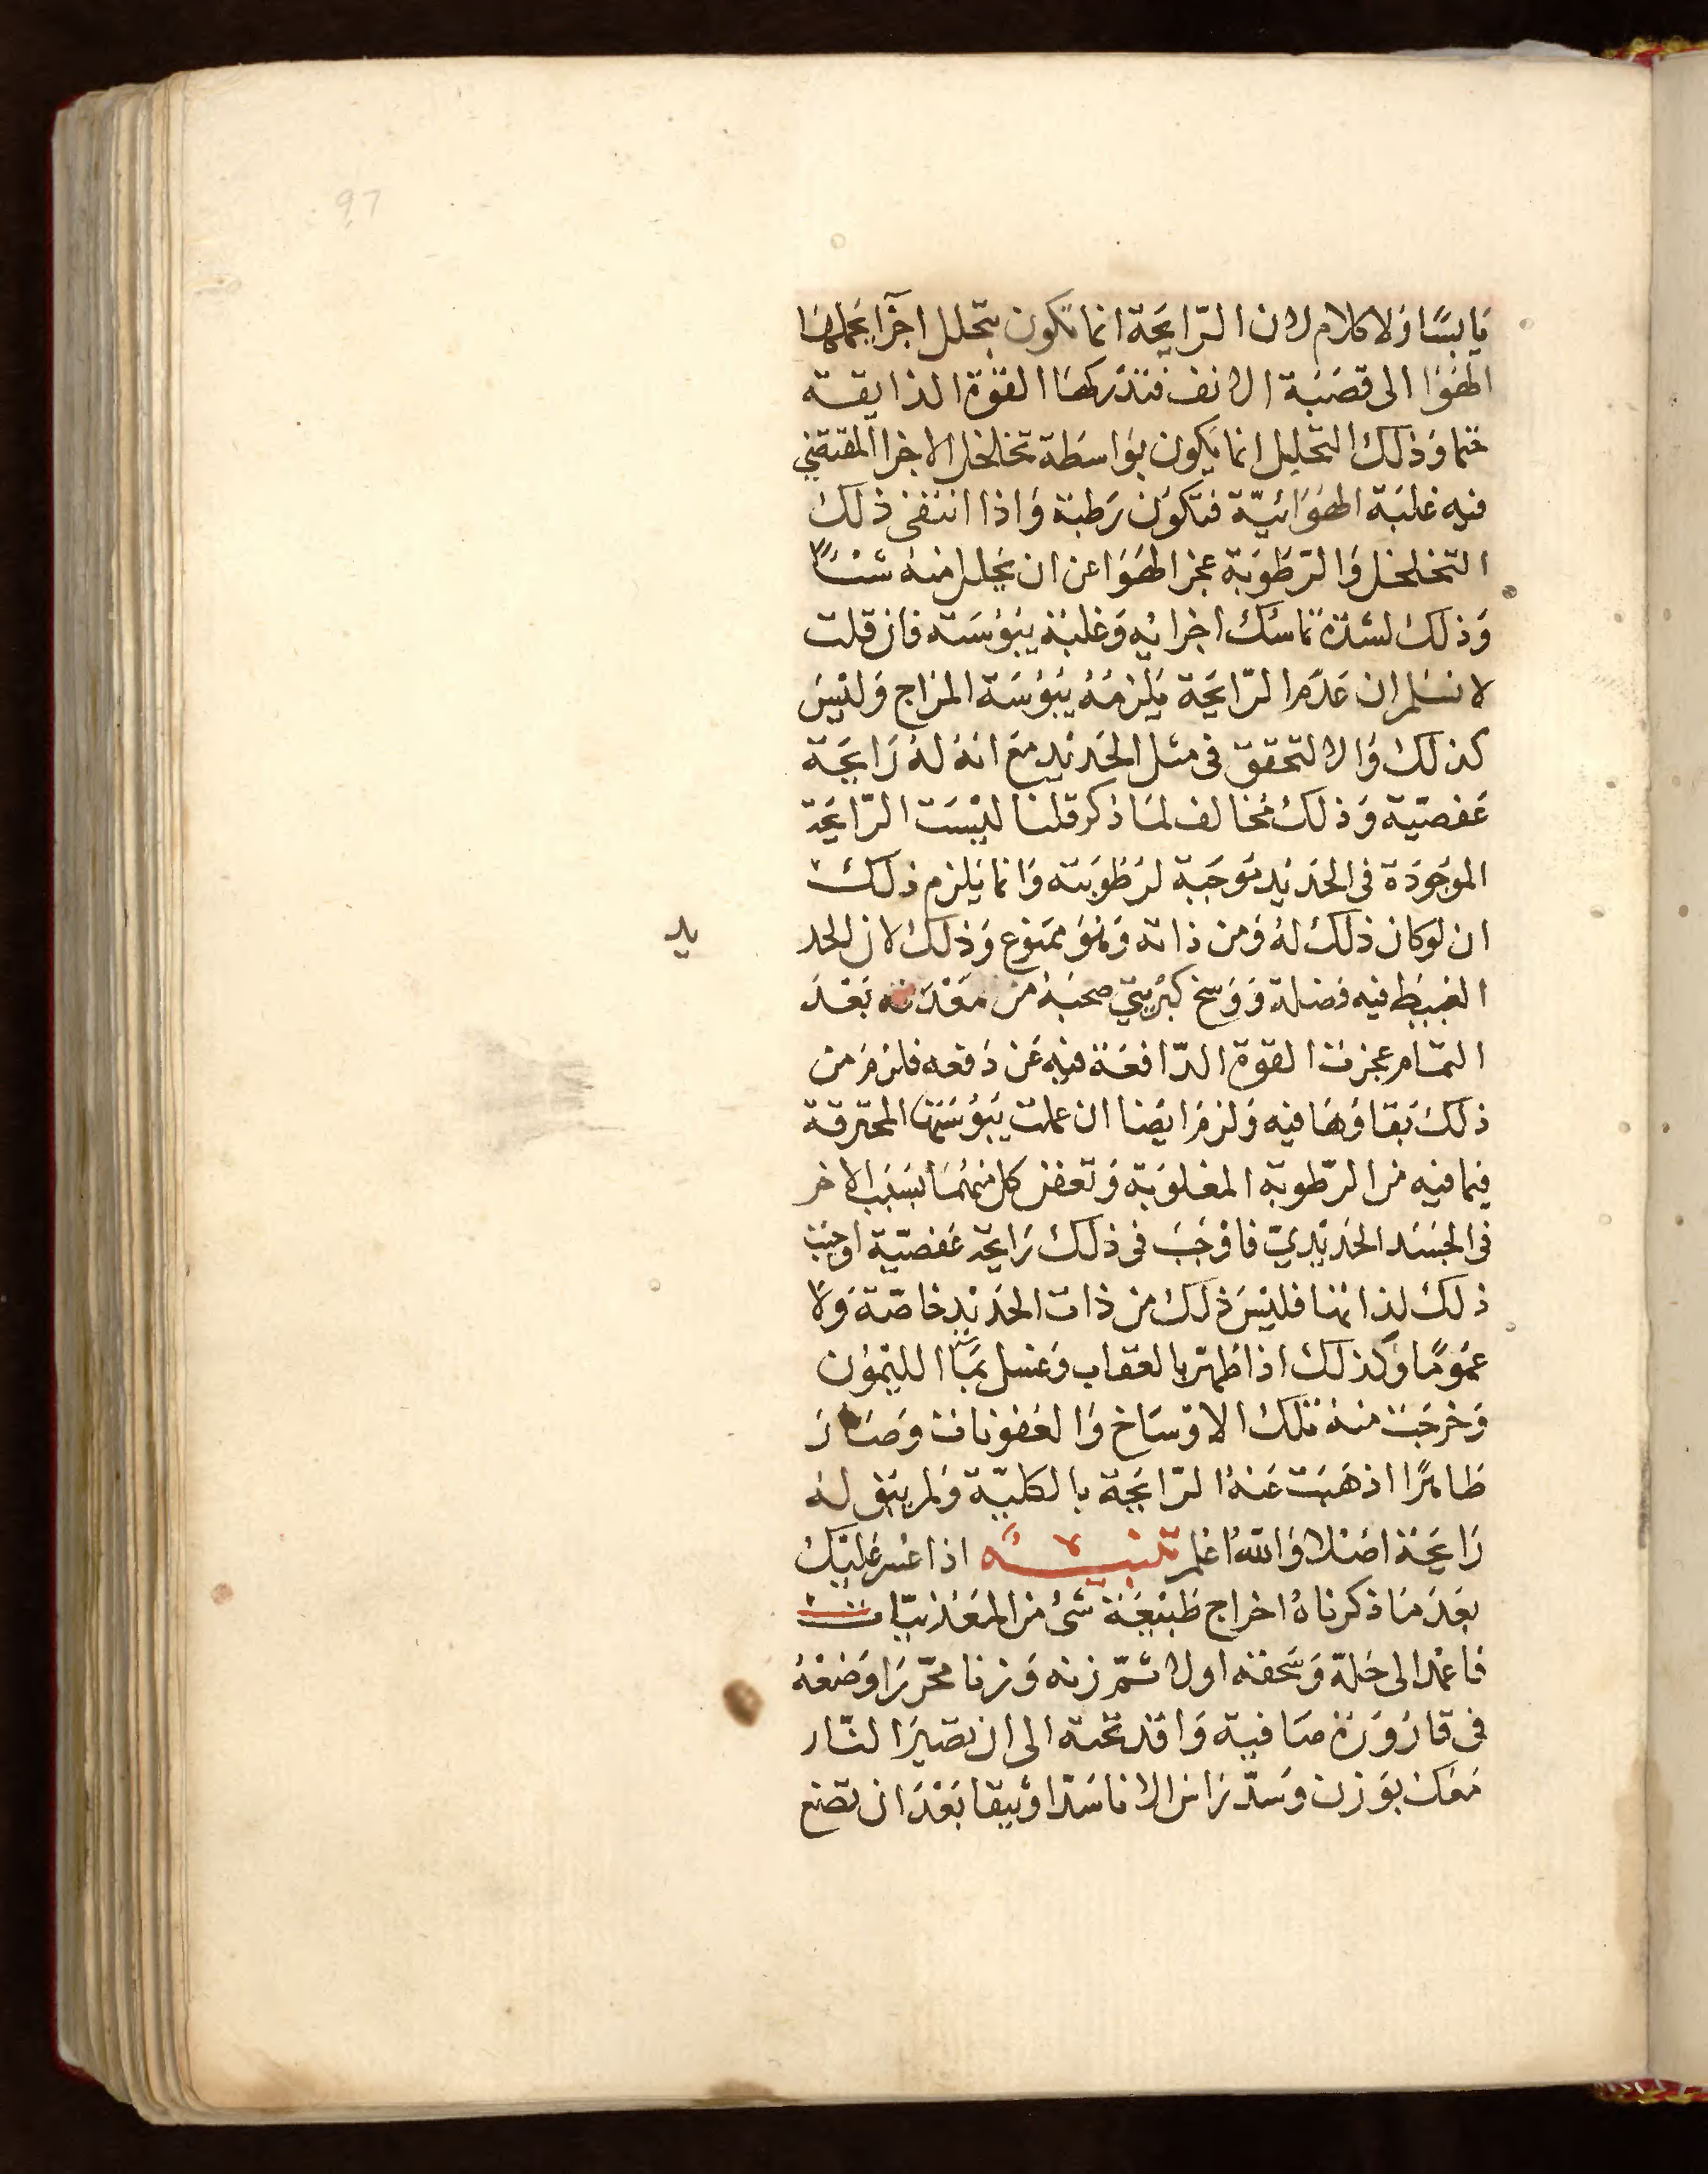 97
يابسًا ولا كلام لان الرّايحة انما تكون بتحلل اجزا يحملها
الهوا الى قصبة الانف فتدركها القوة الذايقة
حتما وذلك التحليل انما يكون بواسطة تخلخل الاجزا المقتضي
فيه غلبة الهوائيّة فتكون رطبة واذا انتفى ذلك
التخلخل والرّطوبة عجز الهوا عن ان يحلل منه شيًا
وذلك لشدة تماسك اجزائه وغلبة يبوسته فان قلت
لا نسلم ان عدم الرّايحة يلزمه يبوسة المزاج وليس
كذلك والا لتحقق في مثل الحديد مع انه له رايحة
عفصيّة وذلك مخالف لما ذكر قلنا ليست الرّايحة
الموجودة في الحديد موجبة لرطوبته وانما يلزم ذلك
ان لو كان ذلك له ومن ذاته وهو ممنوع وذلك لان الحد
يد
الغبيط فيه فضلة ووسخ كبريتيّ صحبه من معدنه بعد
التمام عجزت القوة الدّافعة فيه عن دفعه فلزم من
ذلك بقاؤها فيه ولزم ايضا ان عملت يبوستها المحترقة
فيما فيه من الرّطوبة المغلوبة وتعفن كل منهما بسبب الاخر
في الجسد الحديديّ فاوجب في ذلك رايحة عفصيّة اوجبت
ذلك لذاتها فليس ذلك من ذات الحديد خاصّة ولا
عمومًا وكذلك اذا طهر بالعقاب وغسل بماء الليمون
وخرجت منه تلك الاوساخ والعفونات وصار
طاهرًا اذهبت عنه الرّايحة بالكليّة ولم يبق له
رايحة اصلا والله اعلم تنبيه اذا عسر عليك
بعد ما ذكرناه اخراج طبيعة شئ من المعدنيّات
فاعمد الى حله وسحقه اولا ثمّ زنه وزنا محرّرا وضعه
في قارورة صافية واقد تحته الى ان تصير النّار
معك بوزن وسدّ راس الانا سدا وثيقا بعد ان تضع